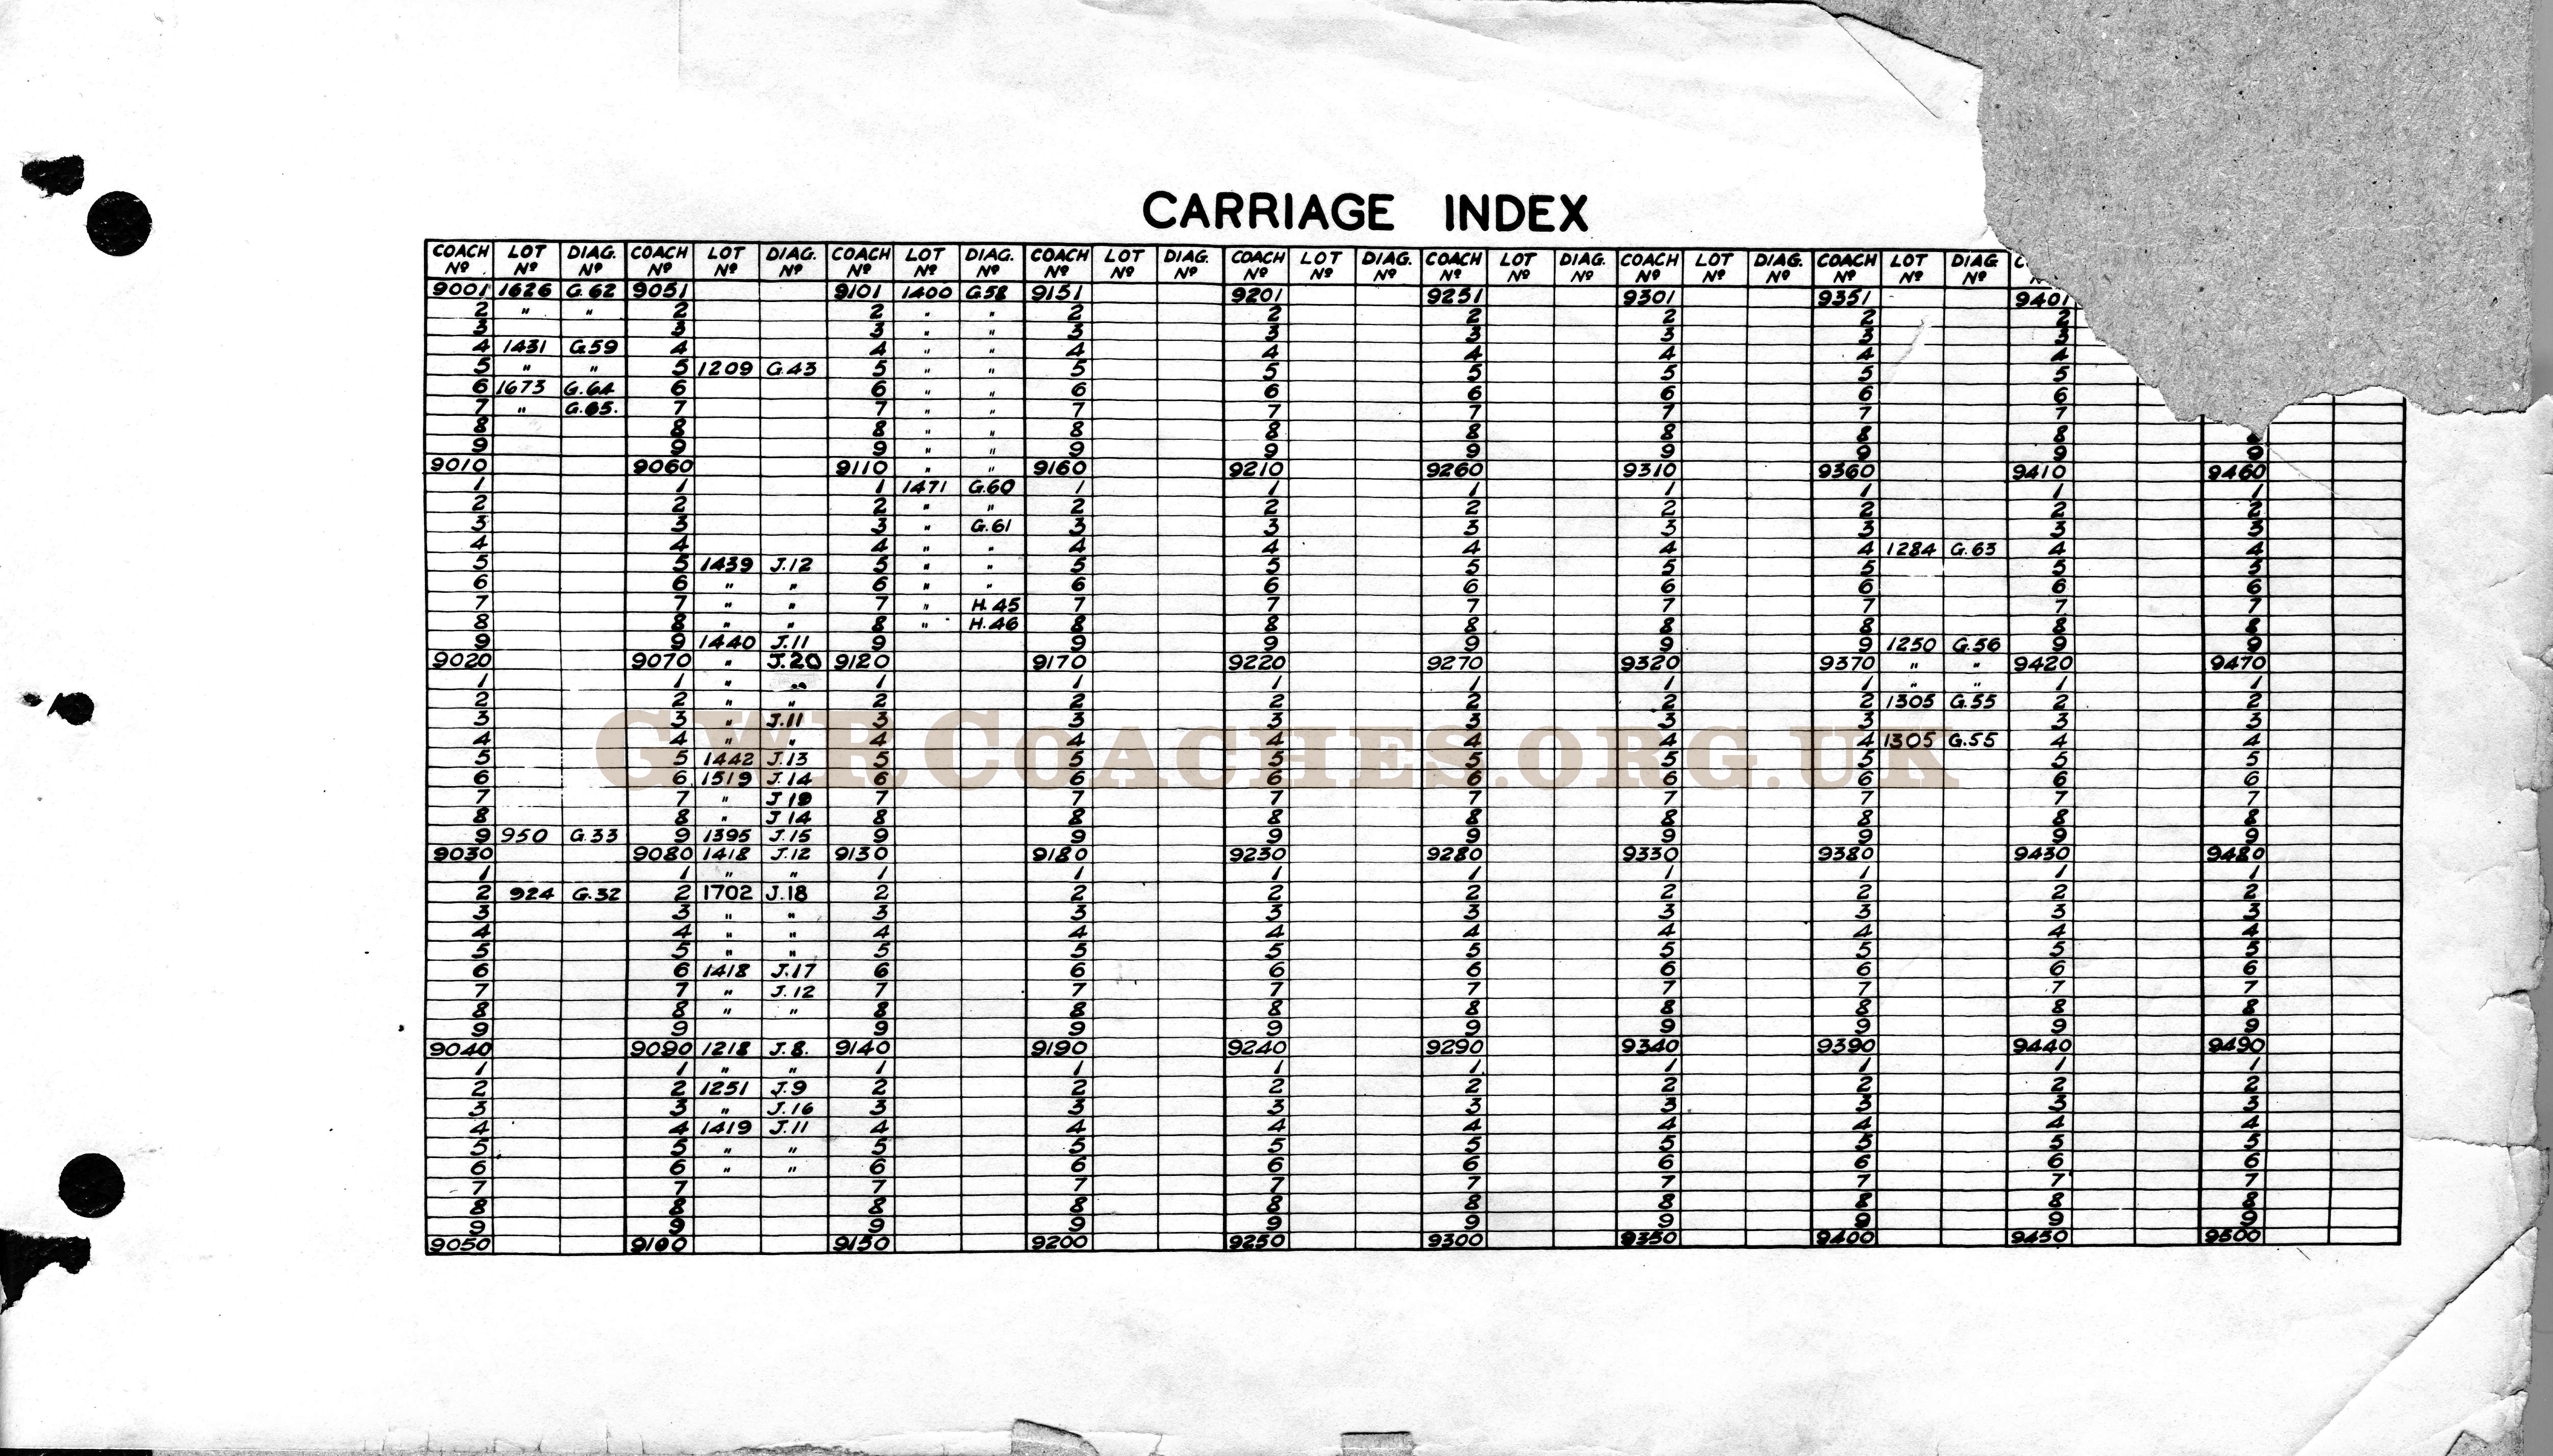 CARRIAGE INDEX
COACH LOT DIAG. COACH LOT DIAG. COACH LOT DIAG. COACH LOT DIAG. COACH LOT DIAG. COACH LOT DIAG. COACH LOT DIAG. COACH LOT DIAG
Nº Nº Nº Nº Nº Nº Nº Nº Nº Nº Nº Nº Nº Nº Nº Nº Nº Nº Nº Nº Nº Nº Nº Nº
9001 1626 G.62 9051 9101 1400 G.58 9151 9201 9251 9301 9351 9401
2 " " 2 2 " " 2 2 2 2 2 2
3 3 3 " " 3 3 3 3 3 3
4 1431 G.59 4 4 " " 4 4 4 4 4 4
5 " " 5 1209 G.43 5 " " 5 5 5 5 5 5
6 1673 G.64 6 6 " " 6 6 6 6 6 6
7 " G.65. 7 7 " " 7 7 7 7 7 7
8 8 8 " " 8 8 8 8 8 8 8
9 9 9 " " 9 9 9 9 9 9 9
9010 9060 9110 " " 9160 9210 9260 9310 9360 9410 9460
1 1 1 1471 G.60 1 1 1 1 1 1 1
2 2 2 " " 2 2 2 2 2 2 2
3 3 3 " G.61 3 3 3 3 3 3 3
4 4 4 " " 4 4 4 4 4 1284 G.63 4 4
5 5 1439 J.12 5 " " 5 5 5 5 5 5 5
6 6 " " 6 " " 6 6 6 6 6 6 6
7 7 " " 7 " H.45 7 7 7 7 7 7 7
8 8 " " 8 " H.46 8 8 8 8 8 8 8
9 9 1440 J.11 9 9 9 9 9 9 1250 G.56 9 9
9020 9070 " J.20 9120 9170 9220 9270 9320 9370 " " 9420 9470
1 1 " " 1 1 1 1 1 1 " " 1 1
2 2 " " 2 2 2 2 2 2 1305 G.55 2 2
3 3 " J.11 3 3 3 3 3 3 3 3
4 4 " " 4 4 4 4 4 4 1305 G.55 4 4
5 5 1442 J.13 5 5 5 5 5 5 5 5
GWRCOACHES.ORG.UK
6 6 1519 J.14 6 6 6 6 6 6 6 6
7 7 " J 19 7 7 7 7 7 7 7 7
8 8 " J 14 8 8 8 8 8 8 8 8
9 950 G.33 9 1395 J.15 9 9 9 9 9 9 9 9
9030 9080 1418 J.12 9130 9180 9230 9280 9330 9380 9430 9480
1 1 " " 1 1 1 1 1 1 1 1
2 924 G.32 2 1702 J.18 2 2 2 2 2 2 2 2
3 3 " " 3 3 3 3 3 3 3 3
4 4 " " 4 4 4 4 4 4 4 4
5 5 " " 5 5 5 5 5 5 5 5
6 6 1418 J.17 6 6 6 6 6 6 6 6
7 7 " J.12 7 7 7 7 7 7 7 7
8 8 " " 8 8 8 8 8 8 8 8
9 9 9 9 9 9 9 9 9 9
9040 9090 1218 J.8. 9140 9190 9240 9290 9340 9390 9440 9490
1 1 " " 1 1 1 1 1 1 1 1
2 2 1251 J.9 2 2 2 2 2 2 2 2
3 3 " J.16 3 3 3 3 3 3 3 3
4 4 1419 J.11 4 4 4 4 4 4 4 4
5 5 " " 5 5 5 5 5 5 5 5
6 6 " " 6 6 6 6 6 6 6 6
7 7 7 7 7 7 7 7 7 7
8 8 8 8 8 8 8 8 8 8
9 9 9 9 9 9 9 9 9 9
9050 9100 9150 9200 9250 9300 9350 9400 9450 9500